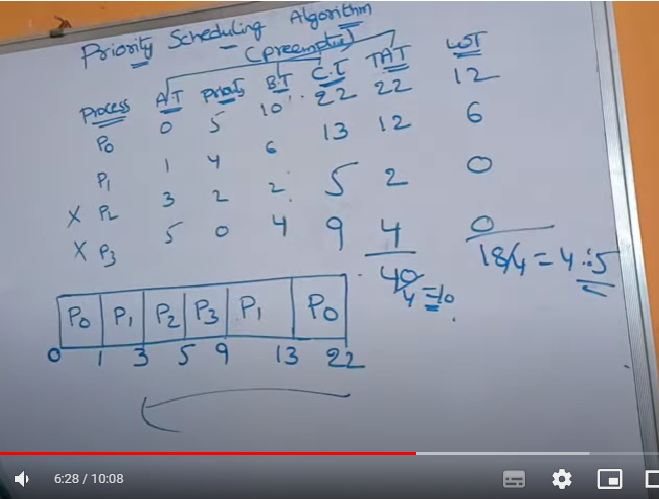 Priority Scheduling Algorithm
(preemptive)
Process A.T Priority B.T C.T TAT WT
P0 0 5 10 22 22 12
P1 1 4 6 13 12 6
X P2 3 2 2 5 2 0
X P3 5 0 4 9 4 0
40/4 = 10
18/4 = 4.5
P0 P1 P2 P3 P1 P0
0 1 3 5 9 13 22
6:28 / 10:08